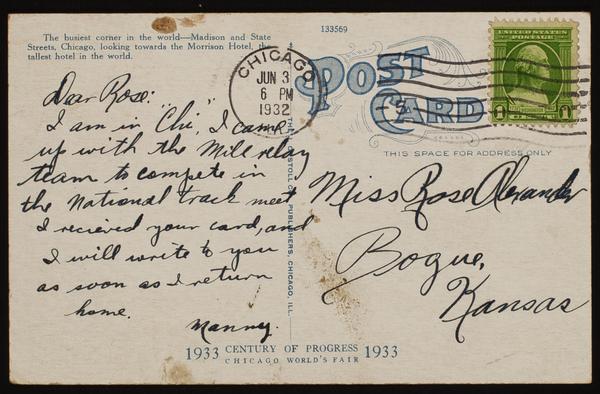 The busiest corner in the world—Madison and State
Streets, Chicago, looking towards the Morrison Hotel, the
tallest hotel in the world.
133569
POST
CARD
THIS SPACE FOR ADDRESS ONLY
CHICAGO
JUN 3
6 PM
1932
UNITED STATES
POSTAGE
1 1
Dear Rose:
I am in "Chi", I came
up with the Mile relay
team to compete in
the National track meet
I recieved your card, and
I will write to you
as soon as I return
home.
Manny.
Miss Rose Alexander
Bogue,
Kansas
PUBLISHERS, CHICAGO, ILL.
1933 CENTURY OF PROGRESS 1933
CHICAGO WORLD'S FAIR